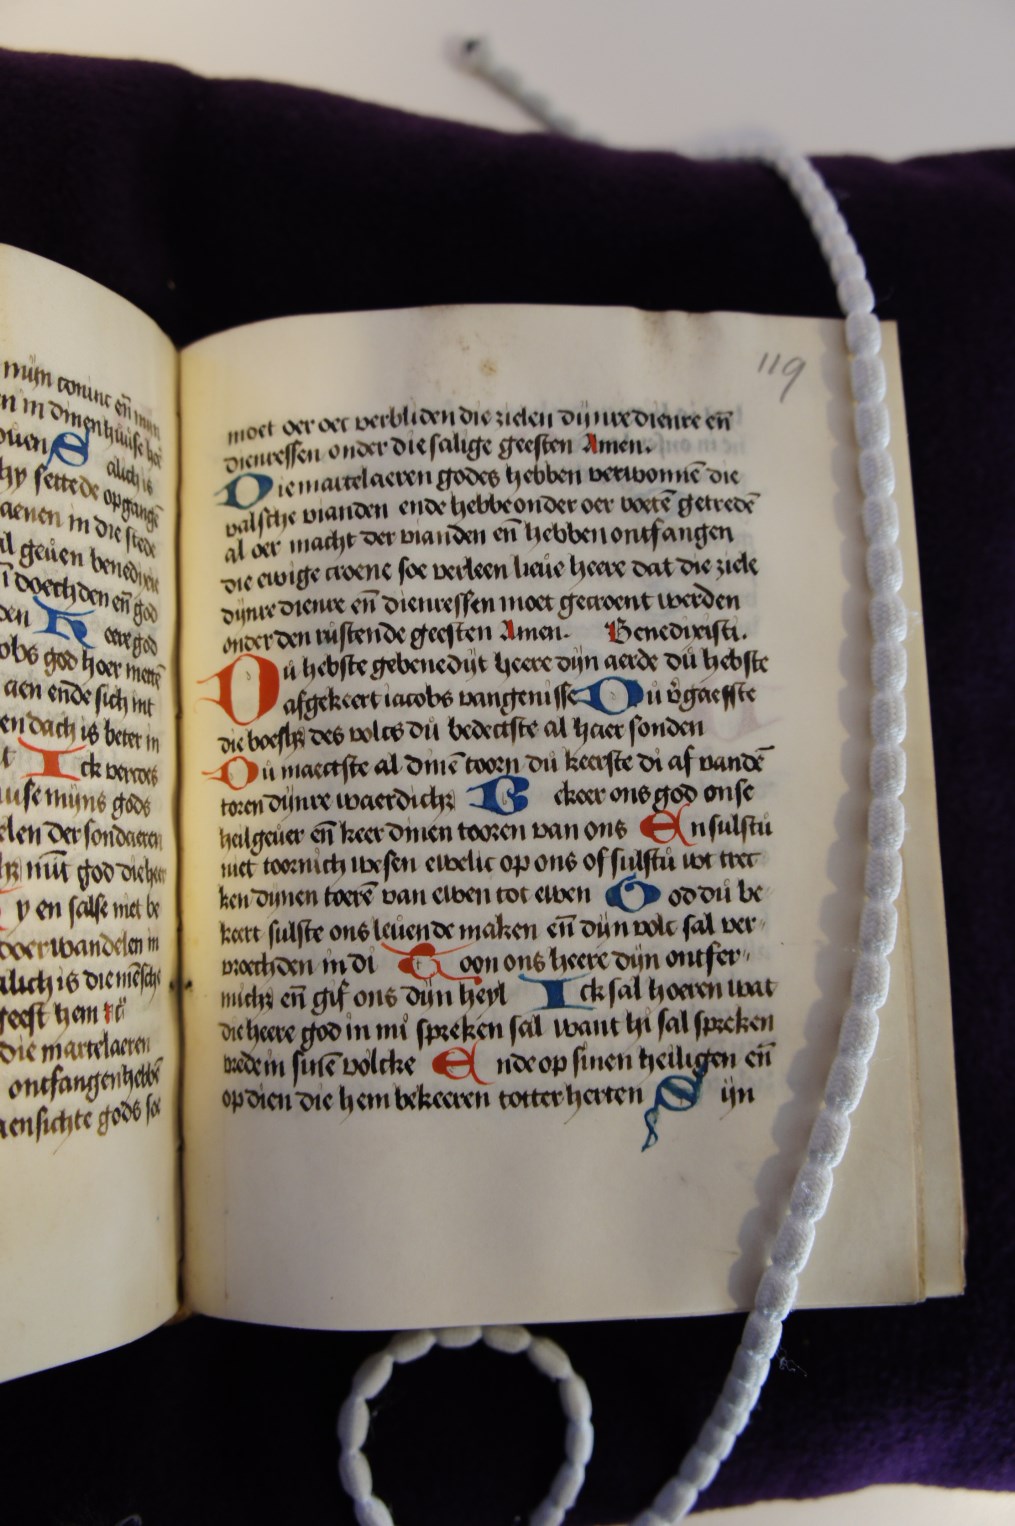 nüÿn coninc en̄ mijn
en in dinen hüüse hee
ouen S alich is
hy settede opgange
aenen in die stede
al geüen benedixie
doechden en̄ god
den H eere god
obs god hoer mette
aen ende sich int
en dach is beter in
I ck vercoes
üse müns gods
elen der sondaeren
müt god die heer
y en salse niet be
doerwandelen in
alich is die mēsche
geest hem
die martelaeren
ontfangen hebbē
aensichte gods soe
119
moet oer oec verbliden die zielen dijnre dienre en̄
dienressen onder die salige geesten Amen.
Die martelaeren godes hebben verwonnē die
valsche vianden ende hebbe onder oer voetē getredē
al oer macht der vianden en̄ hebben ontfangen
die ewige croene soe verleen lieüe heere dat die ziele
dijnre dienre en̄ dienressen moet gecroent werden
onder den rüstende geesten Amen. Benedixisti.
Dü hebste gebenedijt heere dijn aerde dü hebste
afgekeert iacobs vangenisse Dü v̄gaefste
die boesh̨ des volcs dü bedectste al haer sonden
Dü maectste al dinē toorn dü keerste di af vandē
toren dijnre waerdich̨ B ekeer ons god onse
heilgeuer en̄ keer dinen tooren van ons En sülstü
niet toornich wesen ewelic op ons of sülstü wt trec
ken dijnen toerē van ewen tot ewen God dü be
keert sülste ons leüende maken en̄ dijn volc sal ver
vroechden in di Toon ons heere dijn ontfer
mich̨ en̄ gif ons dijn heyl Ick sal hoeren wat
die heere god in mi spreken sal want hi sal spreken
vrede in sinē volcke Ende op sinen heiligen en̄
op dien die hem bekeeren totter herten S ijn